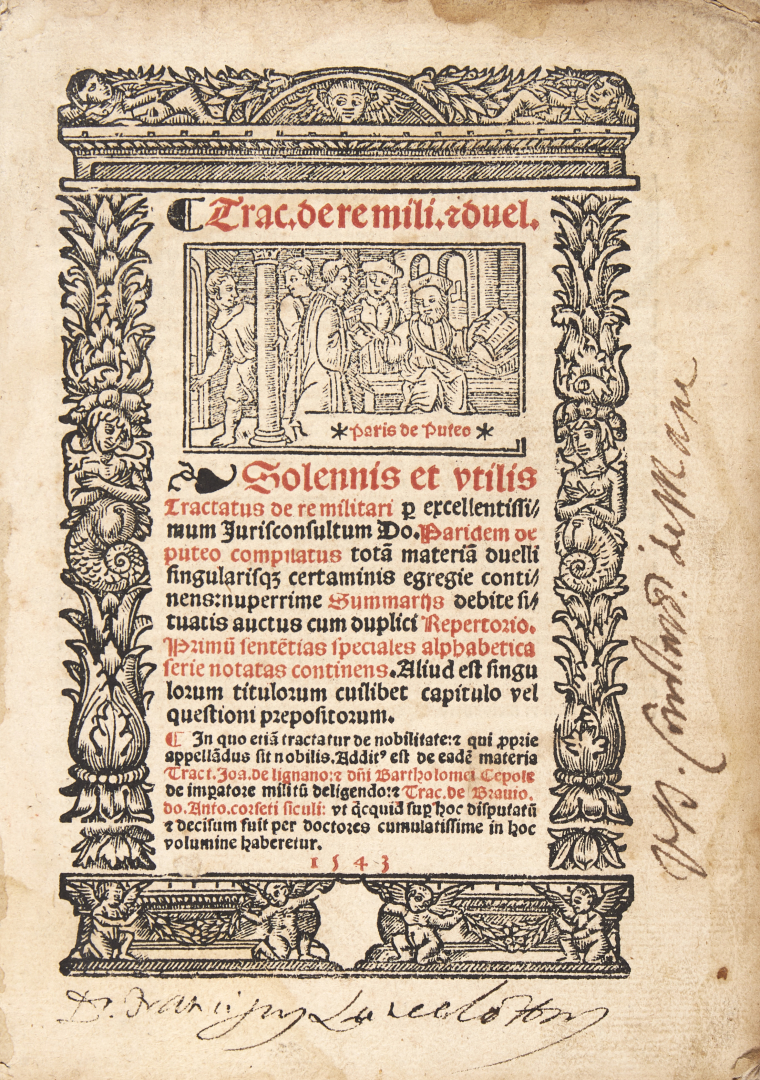 ¶ Trac. de re mili. ⁊ duel.
* Paris de Puteo *
Solennis et vtilis
Tractatus de re militari ꝑ excellentissi/
mum Jurisconsultum Do. Paridem de
puteo compilatus totā materiā duelli
singularisqꝫ certaminis egregie conti/
nens: nuperrime Summarijs debite si/
tuatis auctus cum duplici Repertorio.
Primū sentētias speciales alphabetica
serie notatas continens. Aliud est singu
lorum titulorum cuilibet capitulo vel
questioni prepositorum.
¶ In quo etiā tractatur de nobilitate: ⁊ qui ꝓprie
appellādus sit nobilis. Additꝰ est de eadē materia
Tract. Joa. de lignano: ⁊ dn̄i Bartholomei Cepole
de impatore militū deligendo: ⁊ Trac. de Brauio.
do. Anto. corseti siculi: vt qͥcquid suꝑ hoc disputatū
⁊ decisum fuit per doctores cumulatissime in hoc
volumine haberetur.
1543